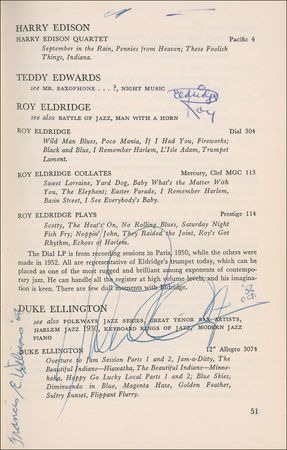 HARRY EDISON
HARRY EDISON QUARTET Pacific 4
September in the Rain, Pennies from Heaven; These Foolish
Things, Indiana.
TEDDY EDWARDS
see MR. SAXOPHONE . . . ?, NIGHT MUSIC
Eldridge
Roy
ROY ELDRIDGE
see also BATTLE OF JAZZ, MAN WITH A HORN
ROY ELDRIDGE Dial 304
Wild Man Blues, Poco Mania, If I Had You, Fireworks;
Black and Blue, I Remember Harlem, L'Isle Adam, Trumpet
Lament.
ROY ELDRIDGE COLLATES Mercury, Clef MGC 113
Sweet Lorraine, Yard Dog, Baby What's the Matter With
You, The Elephant; Easter Parade, I Remember Harlem,
Basin Street, I See Everybody's Baby.
ROY ELDRIDGE PLAYS Prestige 114
Scotty, The Heat's On, No Rolling Blues, Saturday Night
Fish Fry; Noppin' John, They Raided the Joint, Roy's Got
Rhythm, Echoes of Harlem.
The Dial LP is from recording sessions in Paris, 1950, while the others
were made in 1952. All are representative of Eldridge's trumpet today, which can be
placed as one of the most varied and brilliant among exponents of contempo-
rary jazz. He can handle all the registers at high volume levels, and his imagina-
tion is keen. There are few dull moments with Eldridge.
DUKE ELLINGTON
see also FOLKWAYS JAZZ SERIES, GREAT TENOR SAX ARTISTS,
HARLEM JAZZ 1930, KEYBOARD KINGS OF JAZZ, MODERN JAZZ
PIANO
DUKE ELLINGTON 12" Allegro 3074
Overture to Jam Session Parts 1 and 2, Jam-a-Ditty, The
Beautiful Indians—Hiawatha, The Beautiful Indians—Minne-
haha, Happy Go Lucky Local Parts 1 and 2; Blue Skies,
Diminuendo in Blue, Magenta Haze, Golden Feather,
Sultry Sunset, Flippant Flurry.
Francis E. Williams
51